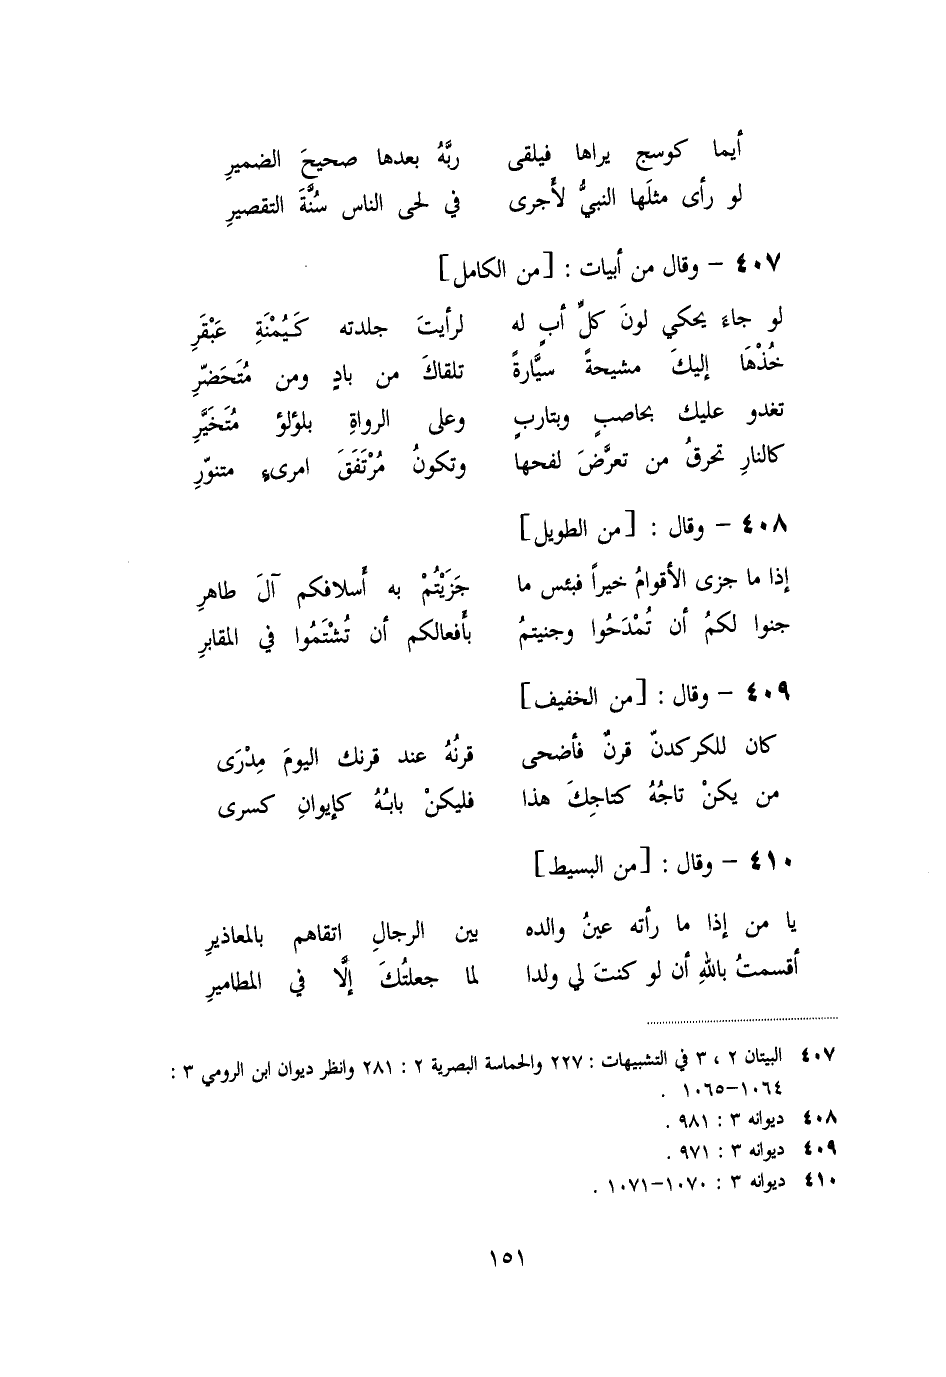 أيما كوسج يراها فيلقى ربَّهُ بعدها صحيحَ الضميرِ
لو رأى مثلَها النبيُّ لأَجرى في لحى الناس سُنَّةَ التقصيرِ
٤٠٧ – وقال من أبيات : [من الكامل]
لو جاءَ يحكي لونَ كلِّ أبٍ له لرأيتَ جلدته كَيُمْنَةِ عَبْقَرِ
خُذْهَا إليكَ مشيحةً سيَّارةً تلقاكَ من بادٍ ومن مُتَحَضِّرِ
تغدو عليك بحاصبٍ وبتاربٍ وعلى الرواةِ بلؤلؤ مُتَخَيَّرِ
كالنارِ تحرقُ من تعرَّضَ لفحها وتكونُ مُرْتَفَقَ امرىءٍ متنوّرِ
٤٠٨ – وقال : [من الطويل]
إذا ما جزى الأقوامُ خيراً فبئس ما جَزَيْتُمْ به أَسلافكم آلَ طاهرِ
جنوا لكمُ أن تُمْدَحُوا وجنيتمُ بأَفعالكم أن تُشْتَمُوا في المقابرِ
٤٠٩ – وقال : [من الخفيف]
كان للكركدنّ قرنٌ فأضحى قرنُهُ عند قرنك اليومَ مِدْرَى
من يكنْ تاجُهُ كتاجِكَ هذا فليكنْ بابُهُ كإيوانِ كسرى
٤١٠ – وقال : [من البسيط]
يا من إذا ما رأته عينُ والده بين الرجالِ اتقاهم بالمعاذيرِ
أقسمتُ باللهِ أن لو كنتَ لي ولدا لما جعلتُكَ إلَّا في المطاميرِ
٤٠٧ البيتان ٢ ، ٣ في التشبيهات : ٢٢٧ والحماسة البصرية ٢ : ٢٨١ وانظر ديوان ابن الرومي ٣ :
١٠٦٤–١٠٦٥ .
٤٠٨ ديوانه ٣ : ٩٨١ .
٤٠٩ ديوانه ٣ : ٩٧١ .
٤١٠ ديوانه ٣ : ١٠٧٠–١٠٧١ .
١٥١